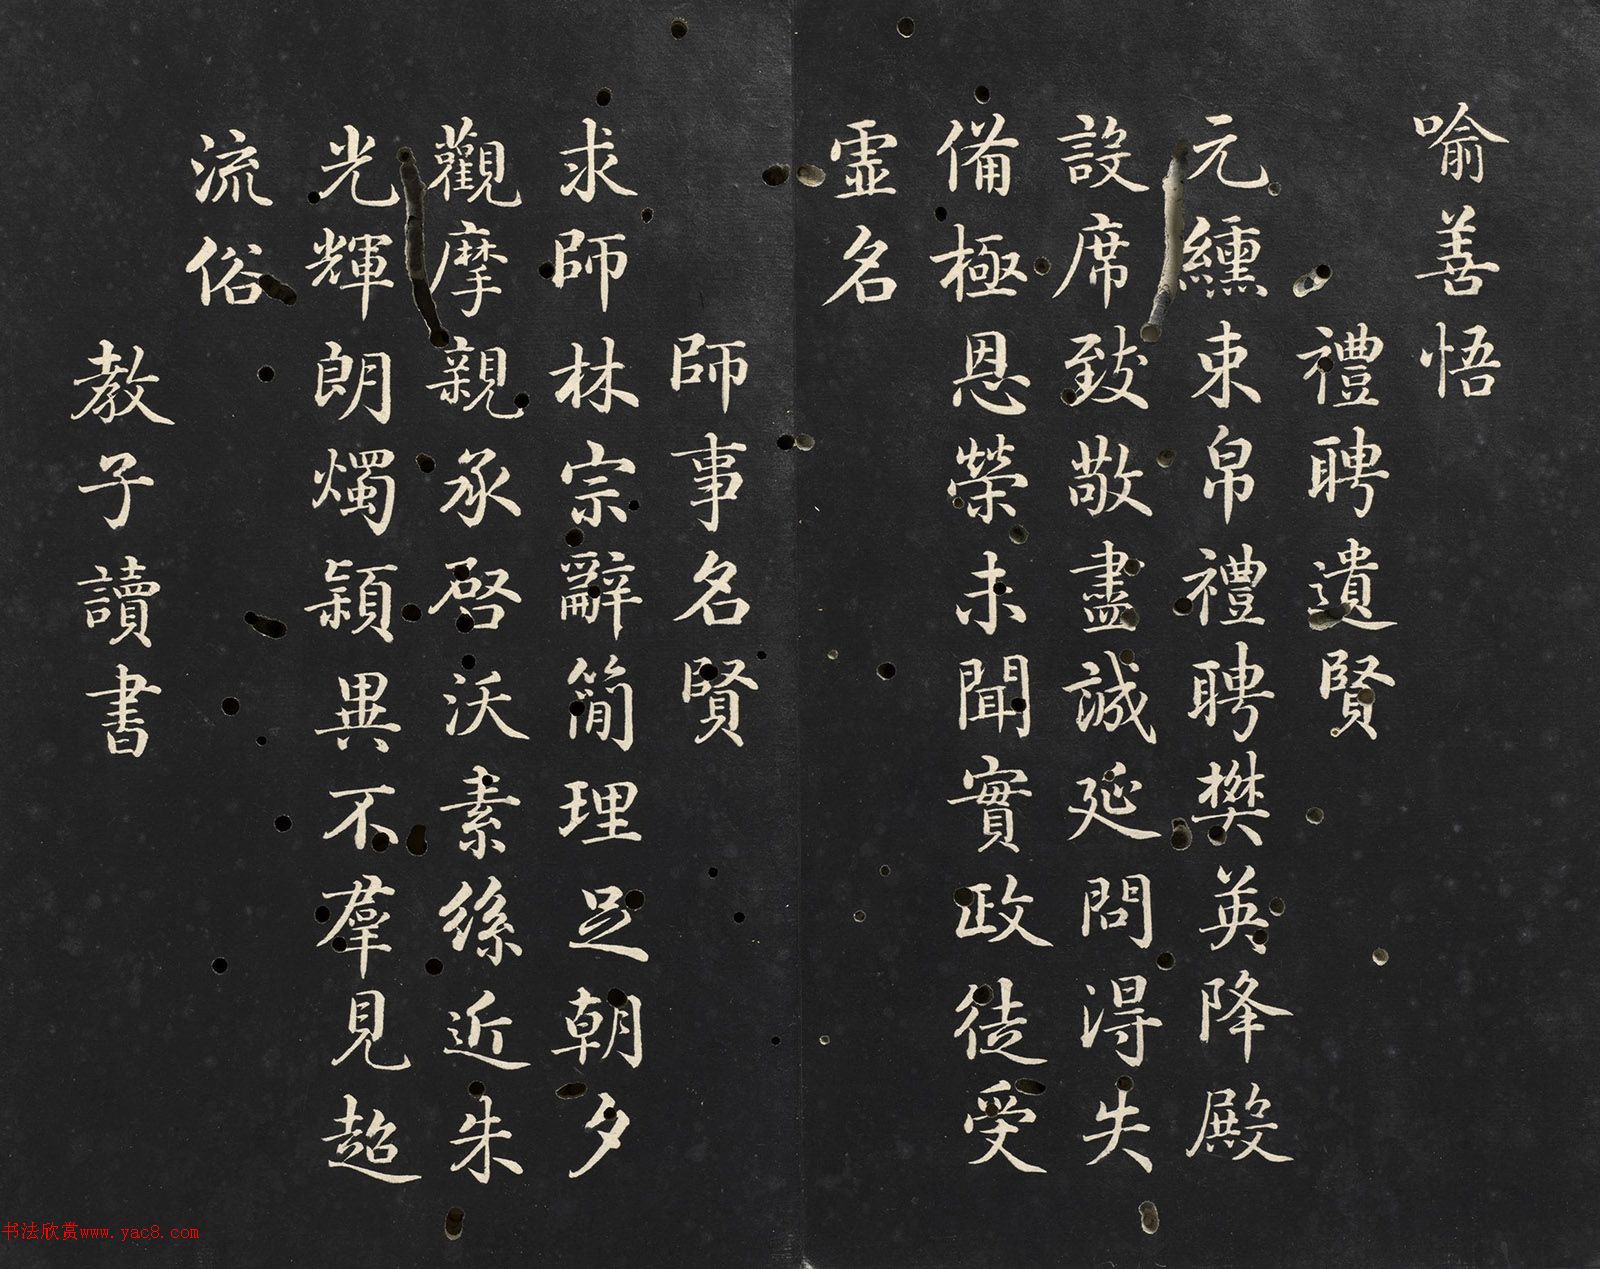 喻善悟
禮聘遺賢
元纁束帛禮聘樊英降殿
設席致敬盡誠延問得失
備極恩榮未聞實政徒受
虛名
師事名賢
求師林宗辭簡理足朝夕
觀摩親承啓沃素絲近朱
光輝朗燭穎異不羣見超
流俗
教子讀書
书法欣赏www.yac8.com